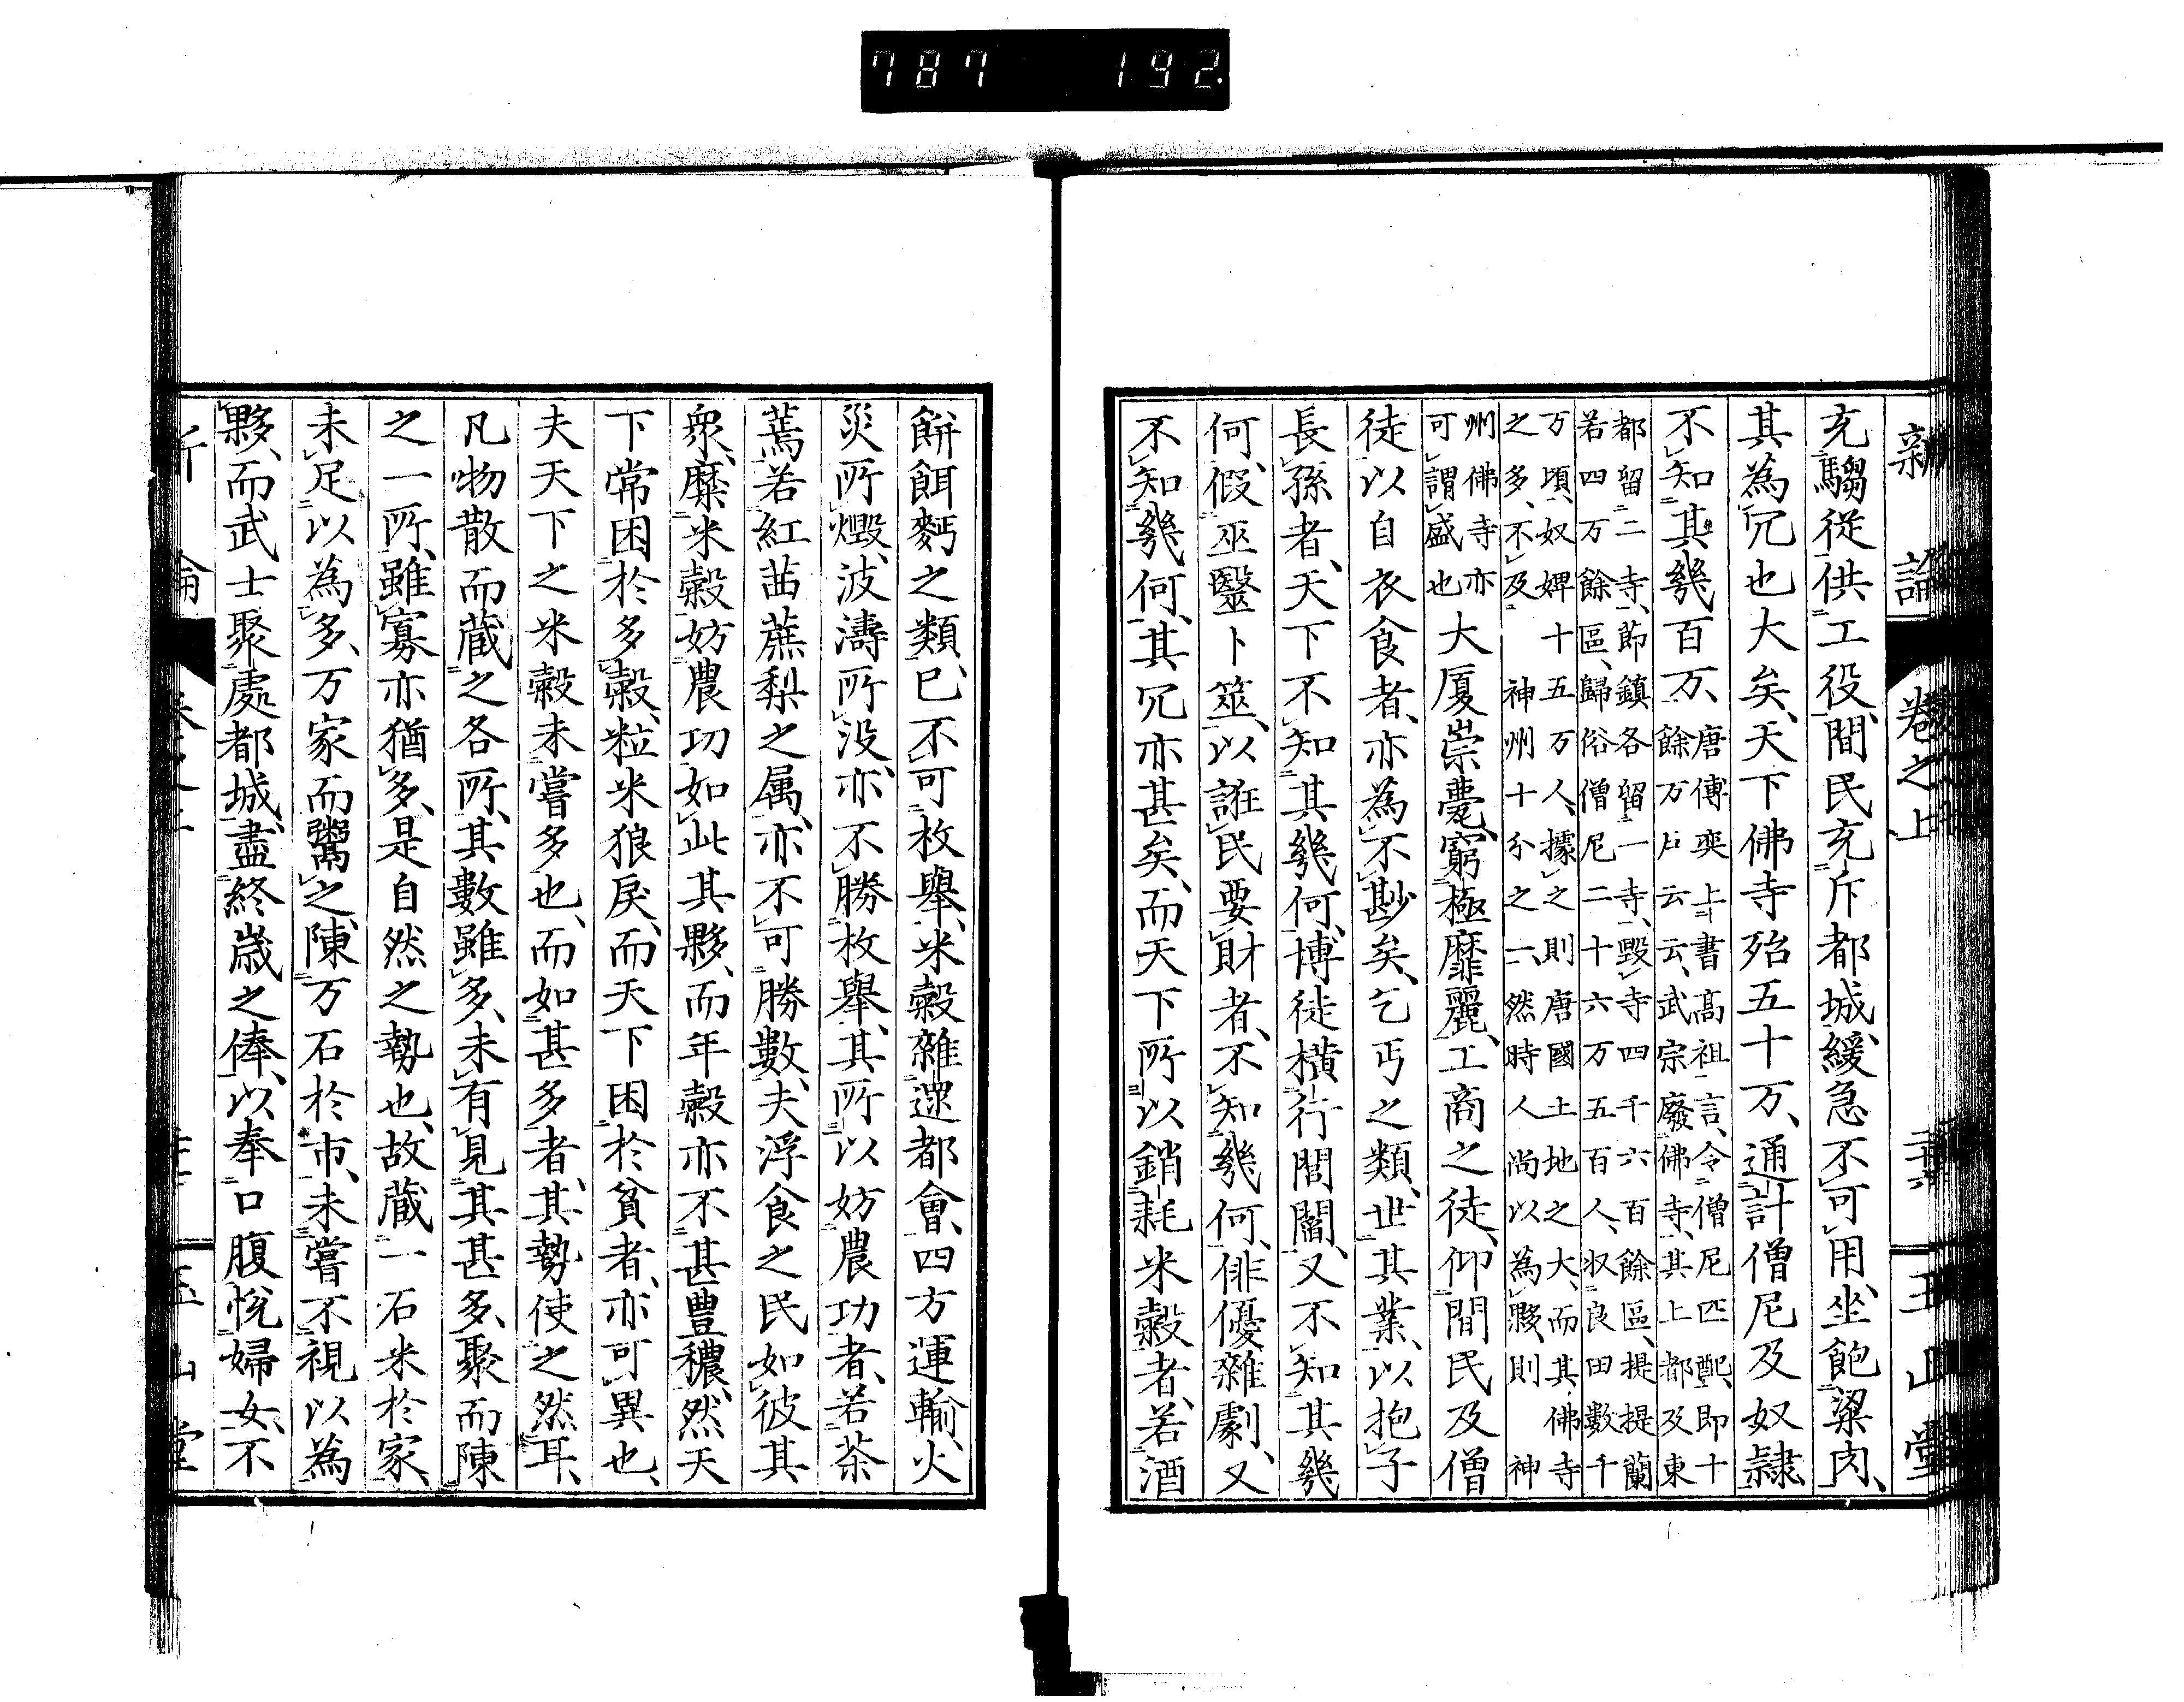 787 192
新論 卷之上 玉山堂
充騶從、供工役、間民充斥都城、緩急不可用、坐飽粱肉、
其為冗也大矣、天下佛寺殆五十万、通計僧尼及奴隸
不知其幾百万、唐傅奕上書高祖言、令僧尼匹配、即十
餘万戶云云、武宗廢佛寺、其上都及東
都留二寺、節鎮各留一寺、毀寺四千六百餘區、提提蘭
若四万餘區、歸俗僧尼二十六万五百人、収良田數千
万頃、奴婢十五万人、據之則唐國土地之大、而其佛寺
之多、不及 神州十分之一、然時人尚以為夥、則 神
州佛寺亦
可謂盛也大厦崇甍、窮極靡麗、工商之徒、仰間民及僧
徒以自衣食者、亦為不尠矣、乞丐之類、世其業、以抱子
長孫者、天下不知其幾何、博徒橫行閭閻、又不知其幾
何、假巫毉卜筮、以誑民要財者、不知幾何、俳優雜劇、又
不知幾何、其冗亦甚矣、而天下所以銷耗米穀者、若酒
餅餌麪之類、已不可枚舉、米穀雜遝都會、四方運輸、火
災所燬、波濤所没、亦不勝枚舉、其所以妨農功者、若茶
蔫若紅茁蔗梨之属、亦不可勝數、夫浮食之民如彼其
衆、糜米穀妨農功如此其夥、而年穀亦不甚豊穰、然天
下常困於多穀、粒米狼戾、而天下困於貧者、亦可異也、
夫天下之米穀未嘗多也、而如甚多者、其勢使之然耳、
凡物散而蔵之各所、其數雖多、未有見其甚多、聚而陳
之一所、雖寡亦猶多、是自然之勢也、故蔵一石米於家、
未足以為多、万家而鬻之、陳万石於市、未嘗不視以為
夥、而武士聚處都城、盡終歳之俸、以奉口腹悅婦女、不